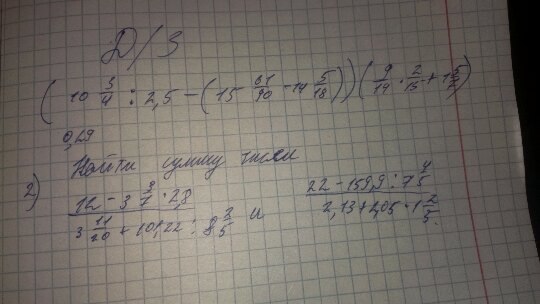 Д/З
(10 3/4 : 2,5 - (15 61/90 - 14 5/18)) (9/14 · 2/15 + 1
0,29
Найти сумму чисел
2) 12 - 3 · 2,8 / 3 11/20 + 101,22 : 8 2/5 и 22 - 159,9 : 7 4/5 / 2,13 + 2,05 · 1 2/5